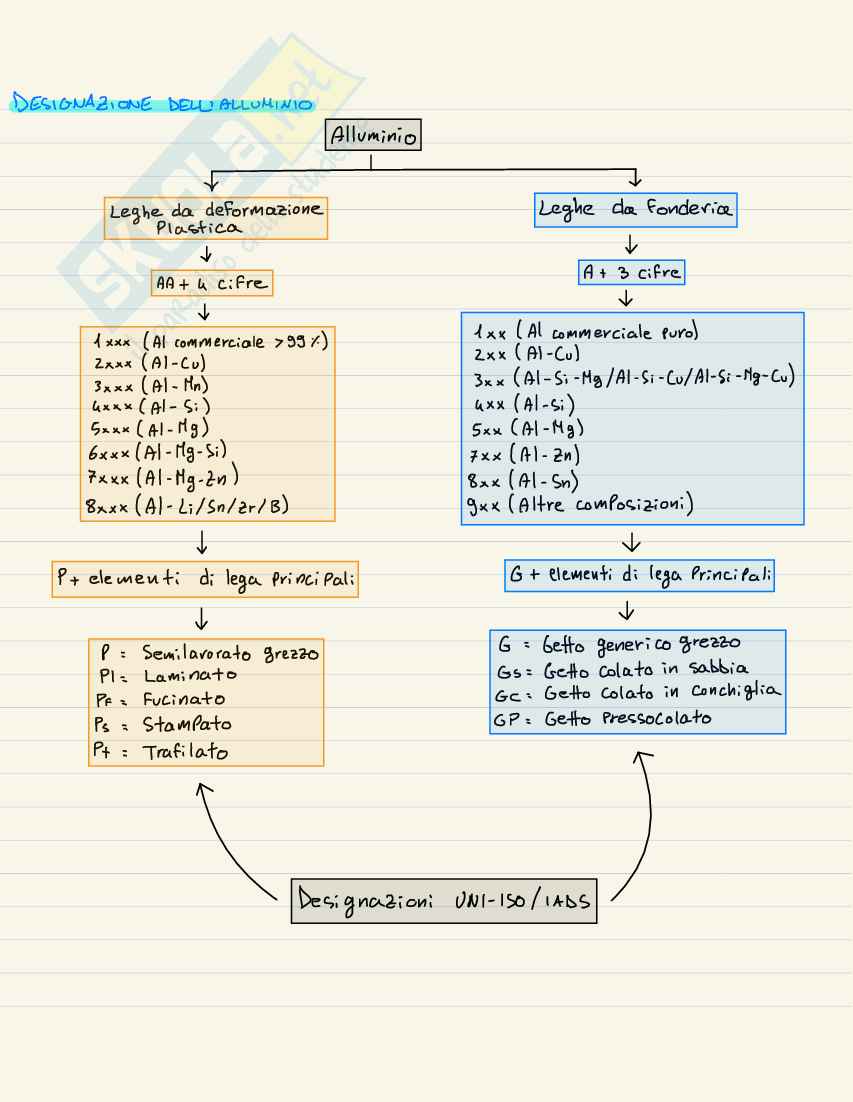 DESIGNAZIONE DELL'ALLUMINIO
Alluminio
Leghe da deformazione
Plastica
AA + 4 cifre
1xxx (Al commerciale >99%)
2xxx (Al-Cu)
3xxx (Al-Mn)
4xxx (Al-Si)
5xxx (Al-Mg)
6xxx (Al-Mg-Si)
7xxx (Al-Mg-Zn)
8xxx (Al-Li/Sn/Zr/B)
P+ elementi di lega principali
P = Semilavorato grezzo
Pl= Laminato
PF = Fucinato
Ps = Stampato
Pt = Trafilato
Leghe da Fonderia
A + 3 cifre
1xx (Al commerciale puro)
2xx (Al-Cu)
3xx (Al-Si-Mg/Al-Si-Cu/Al-Si-Mg-Cu)
4xx (Al-Si)
5xx (Al-Mg)
7xx (Al-Zn)
8xx (Al-Sn)
9xx (Altre composizioni)
G + elementi di lega Principali
G = Getto generico grezzo
Gs = Getto colato in sabbia
GC = Getto colato in conchiglia
GP = Getto Pressocolato
Designazioni UNI-ISO/IADS
SKUOLA.net
il paradiso dello studente